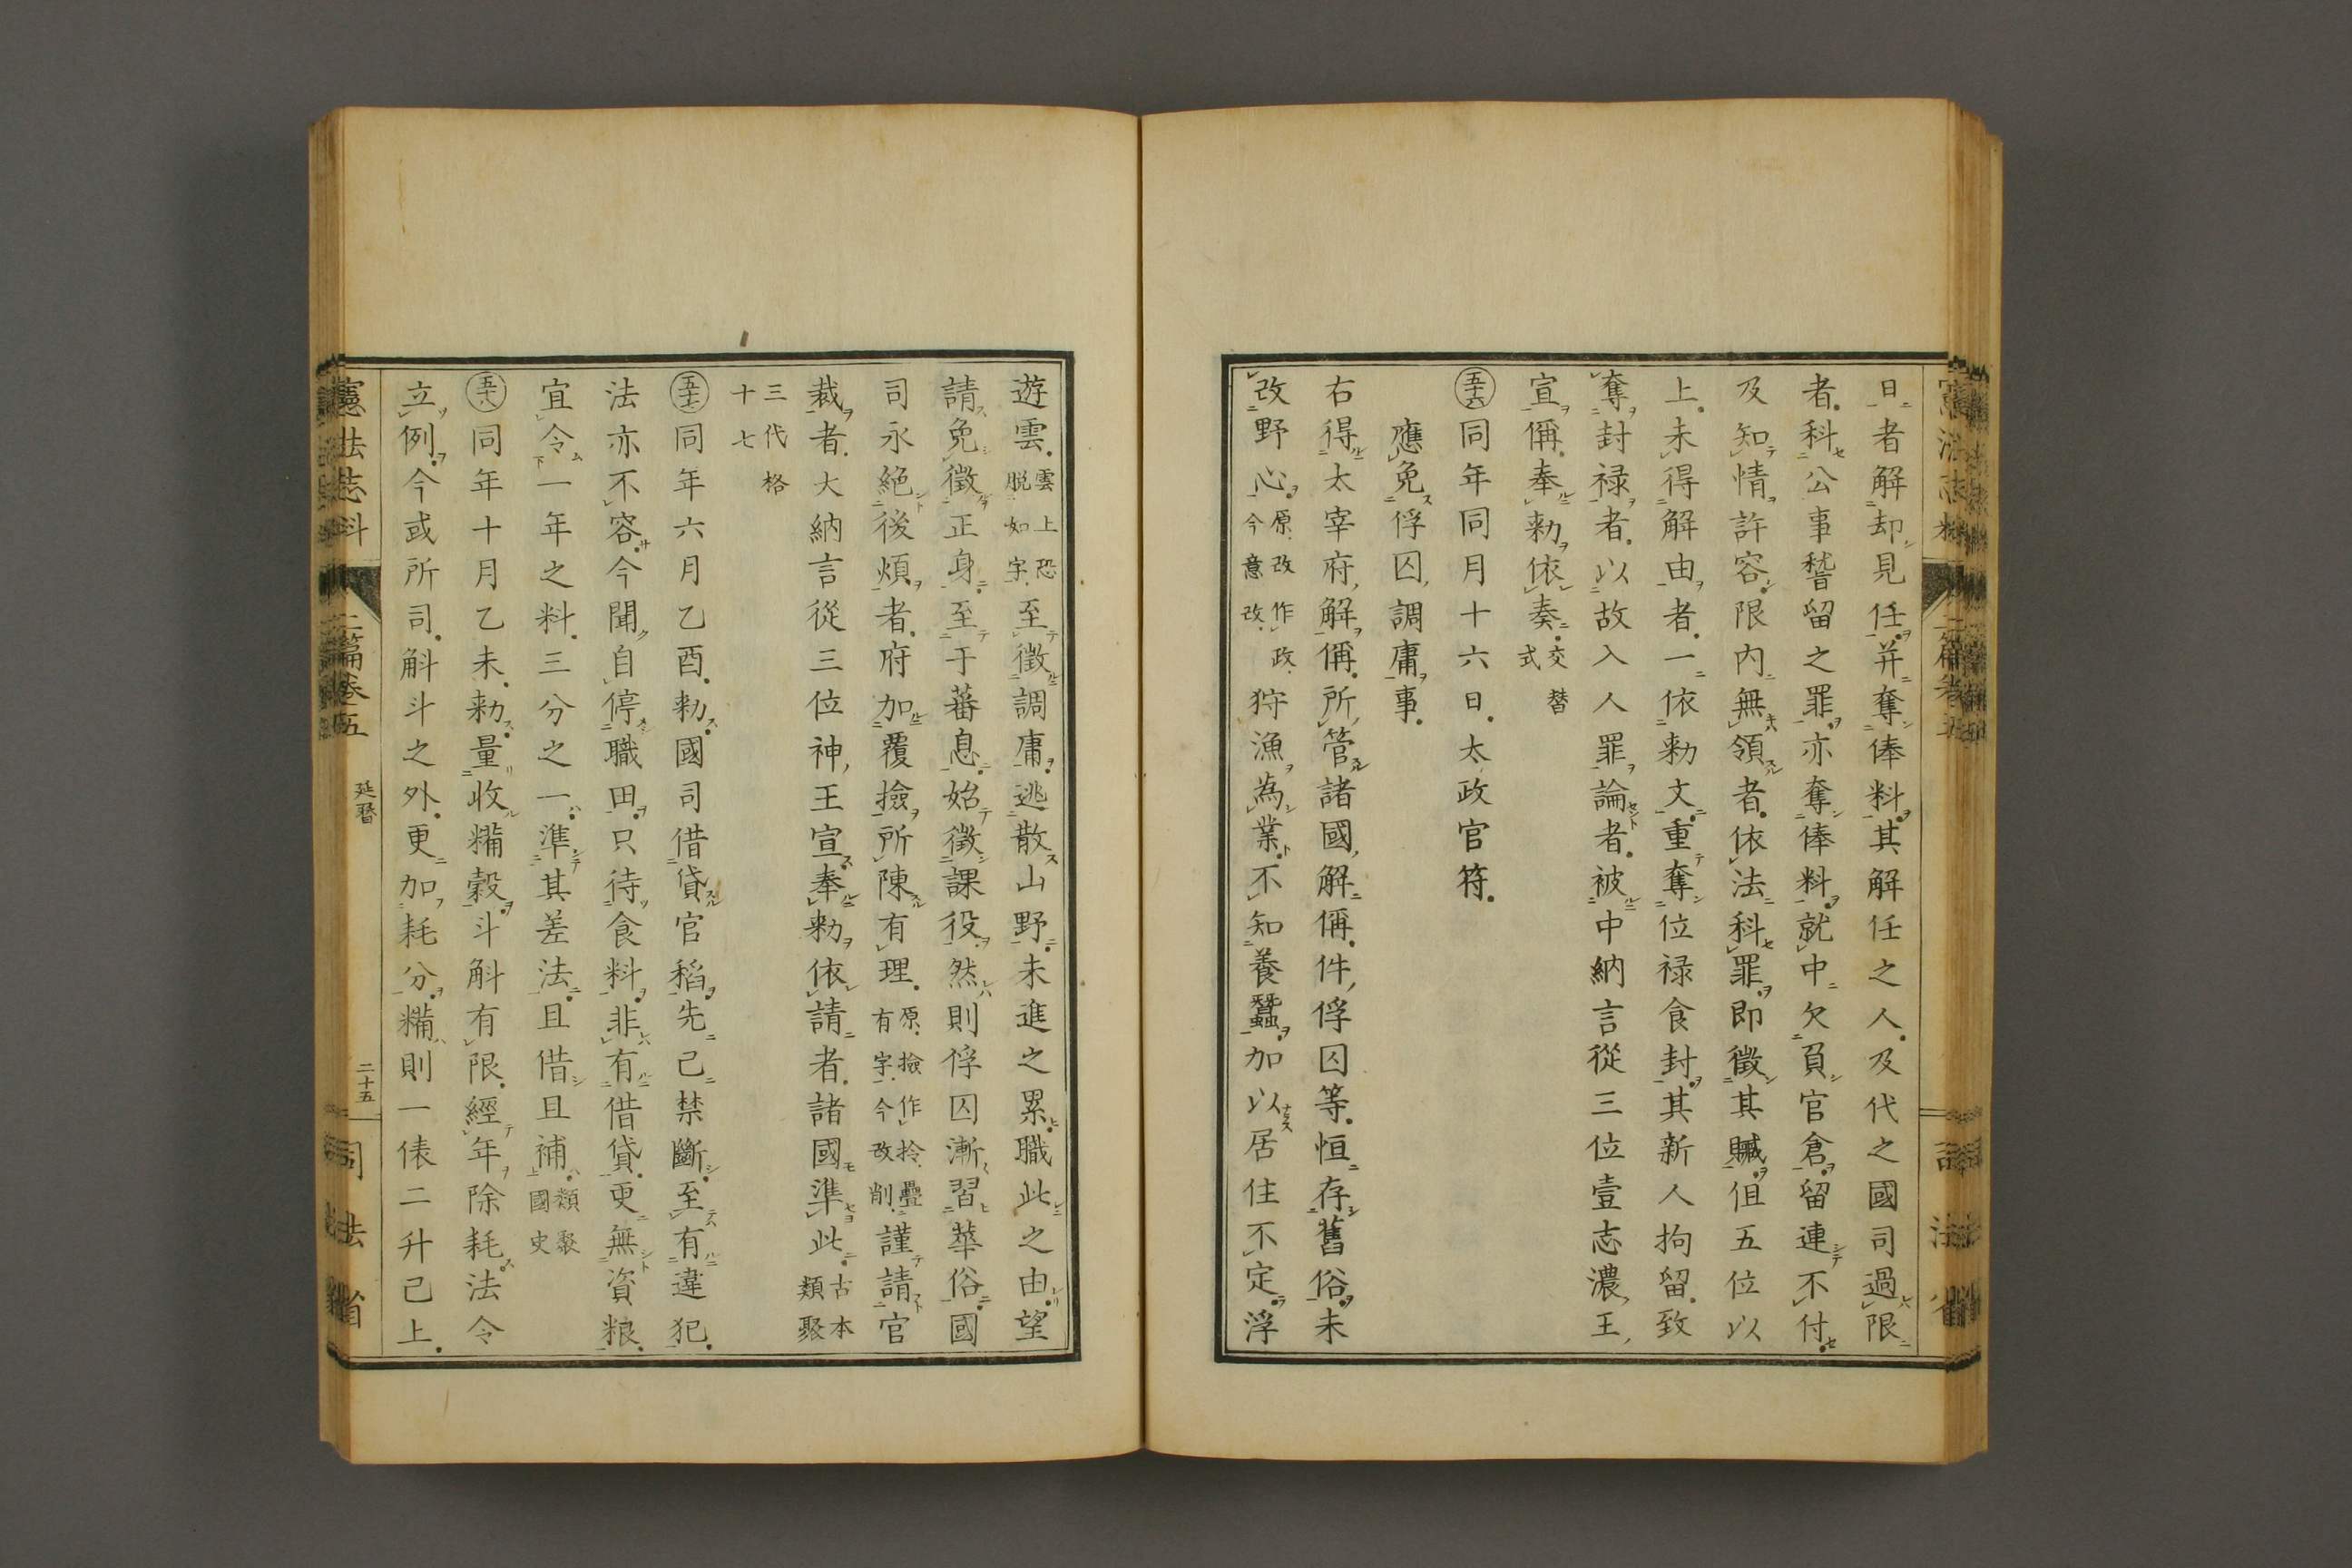 日者解却見任并奪俸料其解任之人及代之國司過限
者科公事稽留之罪亦奪俸料就中欠負官倉留連不付
及知情許容限内無領者依法科罪即徴其贓但五位以
上未得解由者一依勅文重奪位禄食封其新人拘留致
奪封禄者以故入人罪論者被中納言從三位壹志濃王
宣偁奉勅依奏交替式
五十六同年同月十六日太政官符
應免俘囚調庸事
右得太宰府解偁所管諸國解偁件俘囚等恒存舊俗未
改野心原改作政今意改狩漁為業不知養蠶加以居住不定浮
遊雲雲上恐脱如字至徴調庸逃散山野未進之累職此之由望
請免徴正身至于蕃息始徴課役然則俘囚漸習華俗國
司永絶後煩者府加覆撿所陳有理原撿作拾疊有字今改削謹請官
裁者大納言從三位神王宣奉勅依請者諸國準此古本類聚
三代格十七
五十七同年六月乙酉勅國司借貸官稻先已禁斷至有違犯
法亦不容今聞自停職田只待食料非有借貸更無資粮
宜令一年之料三分之一準其差法且借且補類聚國史
五十八同年十月乙未勅量收糒穀斗斛有限經年除耗法令
立例今或所司斛斗之外更加耗分糒則一俵二升已上
憲法志料 二篇卷五 延暦 二十五 司法省